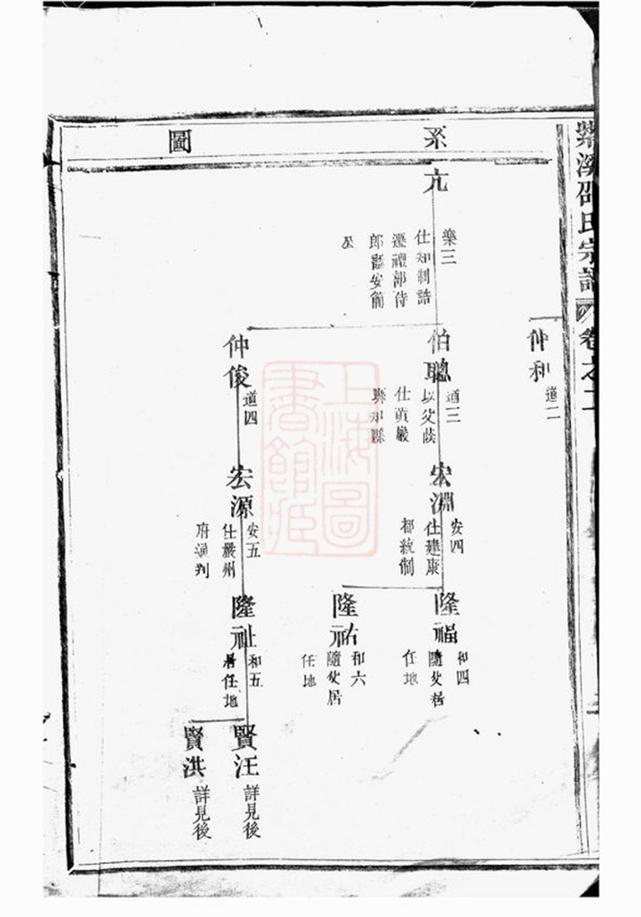 紫溪邵氏宗譜
卷之二
系
圖
仲和
道二
亢
樂三
仕知制誥
遷禮部侍
郎
伯聰
道三
以父蔭
仕黃巖
縣知縣
仲俊
道四
宏淵
安四
仕建康
都統制
宏源
安五
仕嚴州
府通判
隆福
和四
隨父居
任地
隆祐
和六
隨父居
任地
隆祉
和五
居任地
賢汪
詳見後
賢洪
詳見後
上海圖
書館藏